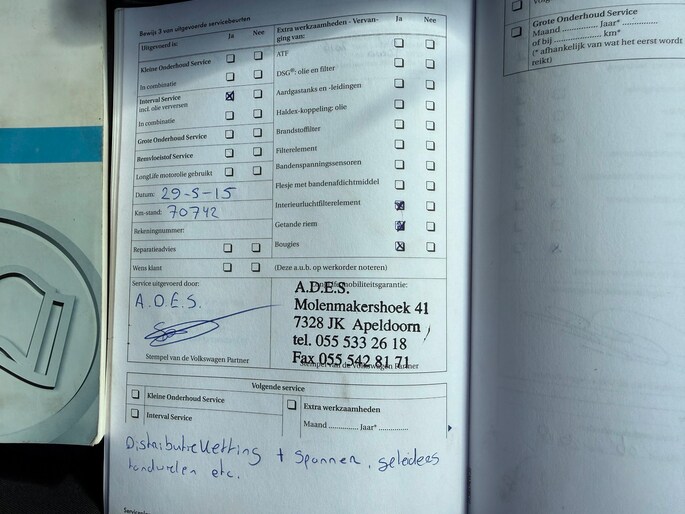 Bewijs 3 van uitgevoerde servicebeurten
Uitgevoerd is: Ja Nee
Kleine Onderhoud Service
In combinatie
Interval Service
incl. olie verversen
In combinatie
Grote Onderhoud Service
Remvloeistof Service
LongLife motorolie gebruikt
Datum: 29-5-15
Km-stand: 70742
Rekeningnummer:
Reparatieadvies
Wens klant
Extra werkzaamheden - Vervan- Ja Nee
ging van:
ATF
DSG®: olie en filter
Aardgastanks en -leidingen
Haldex-koppeling: olie
Brandstoffilter
Filterelement
Bandenspanningssensoren
Flesje met bandenafdichtmiddel
Interieurluchtfilterelement
Getande riem
Bougies
(Deze a.u.b. op werkorder noteren)
Service uitgevoerd door:
A.D.E.S.
Stempel van de Volkswagen Partner
mobiliteitsgarantie:
A.D.E.S.
Molenmakershoek 41
7328 JK Apeldoorn
tel. 055 533 26 18
Fax 055 542 81 71
Stempel van de Volkswagen Partner
Volgende service
Kleine Onderhoud Service
Interval Service
Extra werkzaamheden
Maand ............. Jaar* .............
Distributieketting + Spanner, geleiders
tandwielen etc.
Grote Onderhoud Service
Maand ............. Jaar* .............
of bij ............. km*
(* afhankelijk van wat het eerst wordt
reikt)